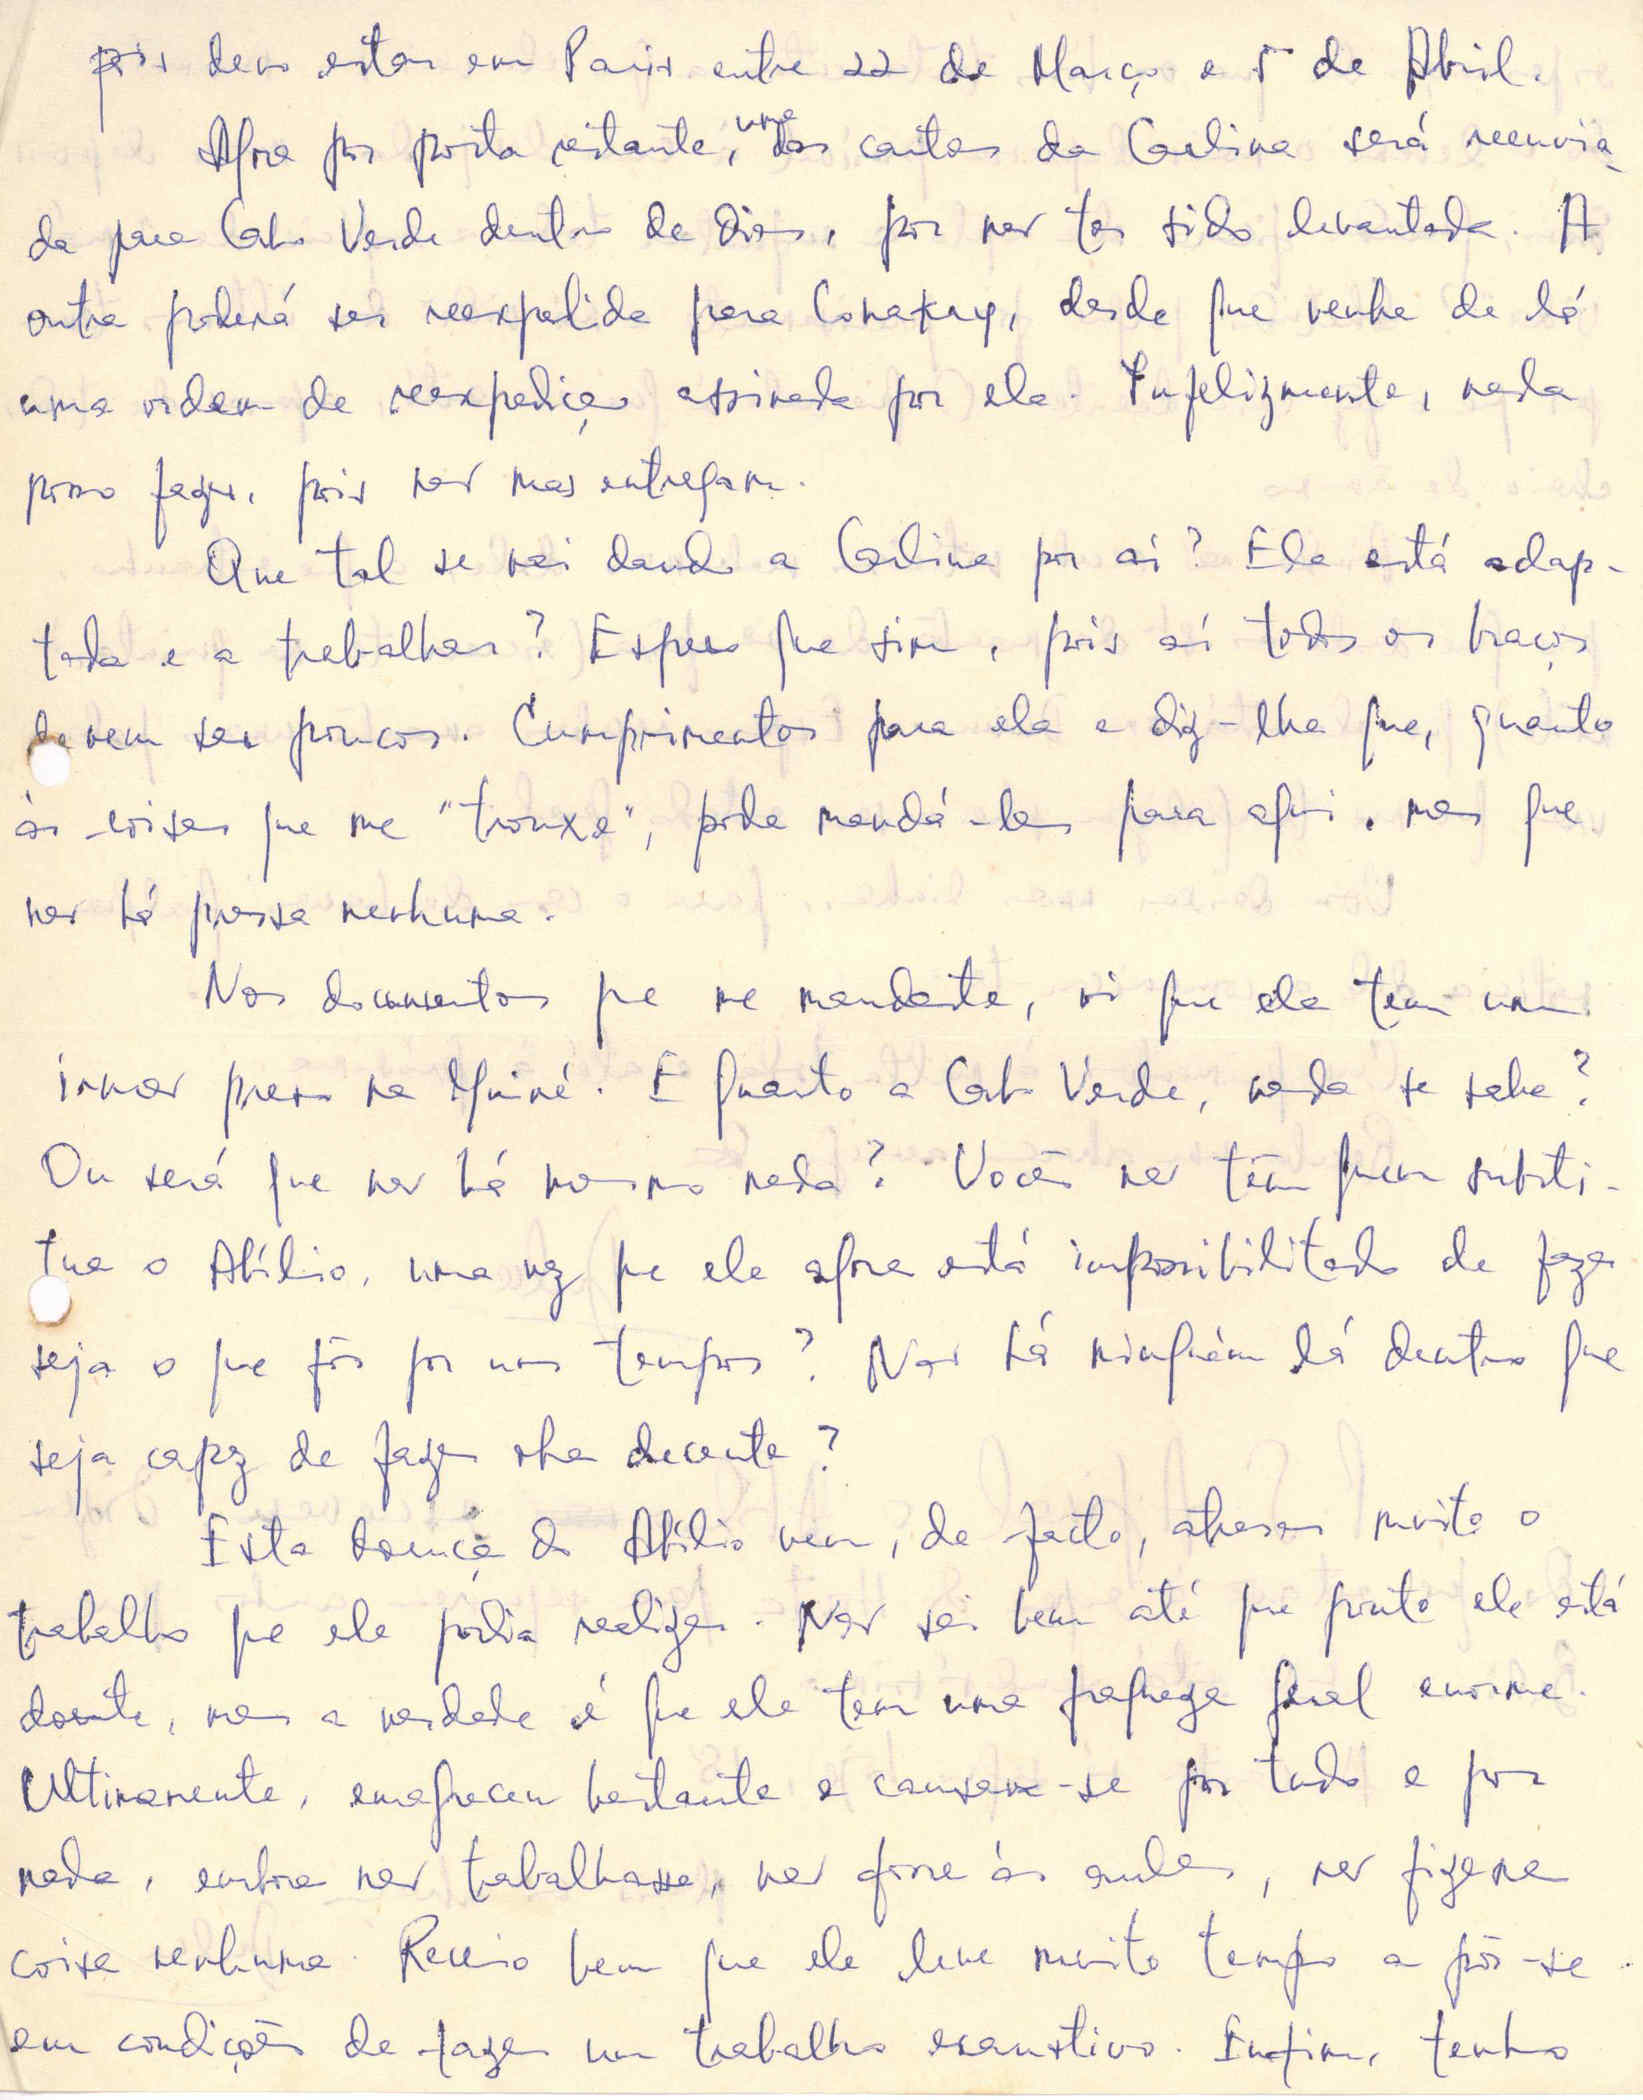 pois devo estar em Paris entre 22 de Março e 5 de Abril.
Agora por posta restante, uma das cartas da Carlina será reenvia-
da para Cabo Verde dentro de dias, por não ter sido levantada. A
outra poderá ser reexpedida para Conakry, desde que venha de lá
uma ordem de reexpedição assinada por ela. Infelizmente, nada
posso fazer, pois não mas entregam.
Que tal se vai dando a Carlina por aí? Ela está adap-
tada e a trabalhar? Espero que sim, pois aí todos os braços
devem ser poucos. Cumprimentos para ela e diz-lhe que, quanto
às coisas que me "trouxe", pode mandá-las para aqui, mas que
não há pressa nenhuma.
Nos documentos que me mandaste, vi que ela tem um
irmão preso na Guiné. E quanto a Cabo Verde, nada se sabe?
Ou será que não há mesmo nada? Vocês não têm quem substi-
tua o Abílio, uma vez que ele agora está impossibilitado de fazer
seja o que fôr por uns tempos? Não há ninguém lá dentro que
seja capaz de fazer obra decente?
Esta doença do Abílio vem, de facto, atrasar muito o
trabalho que ele podia realizar. Não sei bem até que ponto ele está
doente, mas a verdade é que ele tem uma fraqueza geral enorme.
Ultimamente, emagreceu bastante e cansava-se por tudo e por
nada, embora não trabalhasse, não fosse às aulas, não fizesse
coisa nenhuma. Receio bem que ele leve muito tempo a pôr-se
em condições de fazer um trabalho exaustivo. Enfim, tenho